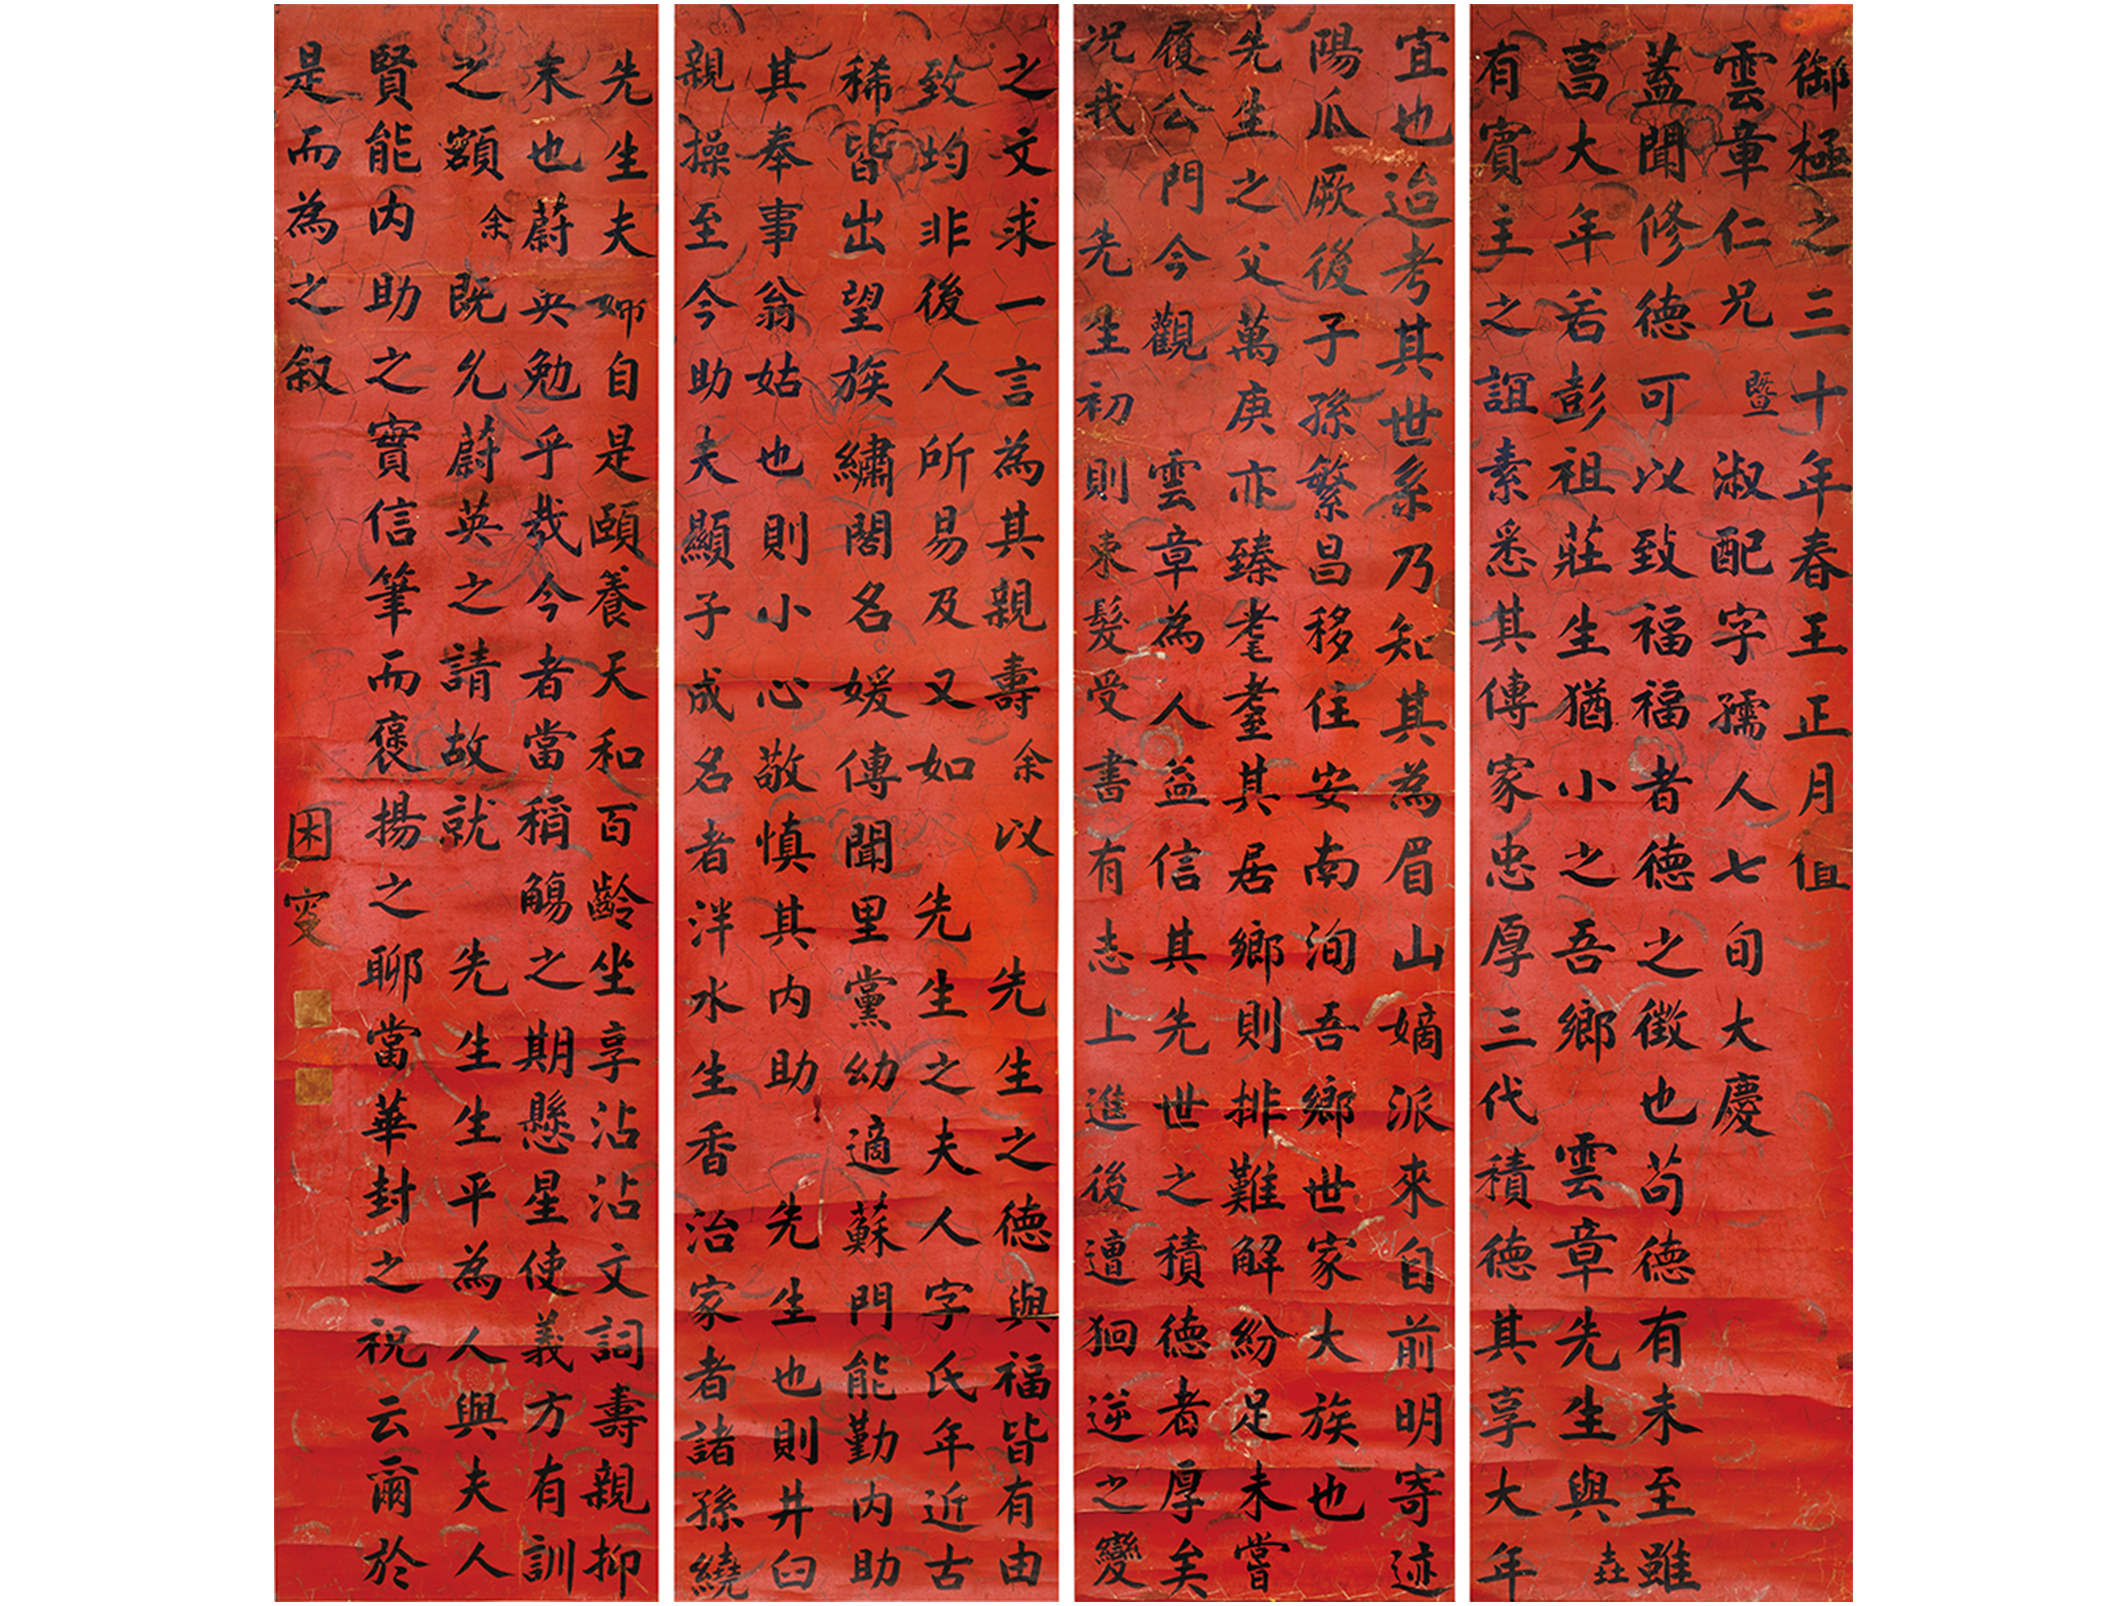 御極之三十年春王正月值
雲章仁兄暨淑配字孺人七旬大慶
蓋聞修德可以致福福者德之徵也苟德有未至雖
富大年若彭祖莊生猶小之吾鄉雲章先生與壵
有賓主之誼素悉其傳家忠厚三代積德其享大年
宜也迨考其世系乃知其為眉山嫡派來自前明寄迹
陽瓜厥後子孫繁昌移住安南洵吾鄉世家大族也
先生之父萬庚亦臻耄耋其居鄉則排難解紛足未嘗
履公門今觀雲章為人益信其先世之積德者厚矣
況我先生初則束髮受書有志上進後遭狟逆之變
之文求一言為其親壽余以先生之德與福皆有由
致均非後人所易及又如先生之夫人字氏年近古
稀皆出望族繡閣名媛傳聞里黨幼適蘇門能勤內助
其奉事翁姑也則小心敬慎其內助先生也則井臼
親操至今助夫顯子成名者泮水生香治家者諸孫繞
先生夫婦自是頤養天和百齡坐享沾沾文詞壽親抑
末也蔚英勉乎哉今者當稱觴之期懸星使義方有訓
之額余既允蔚英之請故就先生生平為人與夫人
賢能內助之實信筆而褒揚之聊當華封之祝云爾於
是而為之叙
困叟